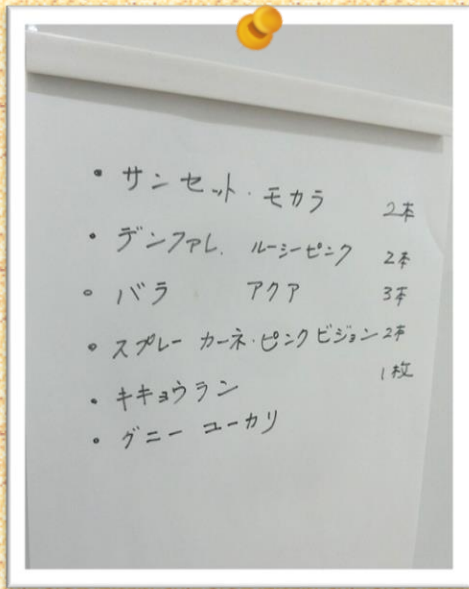 ・サンセット・モカラ 2本
・デンファレ. ルーシーピンク 2本
・バラ アクア 3本
・スプレー カーネ・ピンクビジョン 2本
・キキョウラン 1枚
・グニー ユーカリ